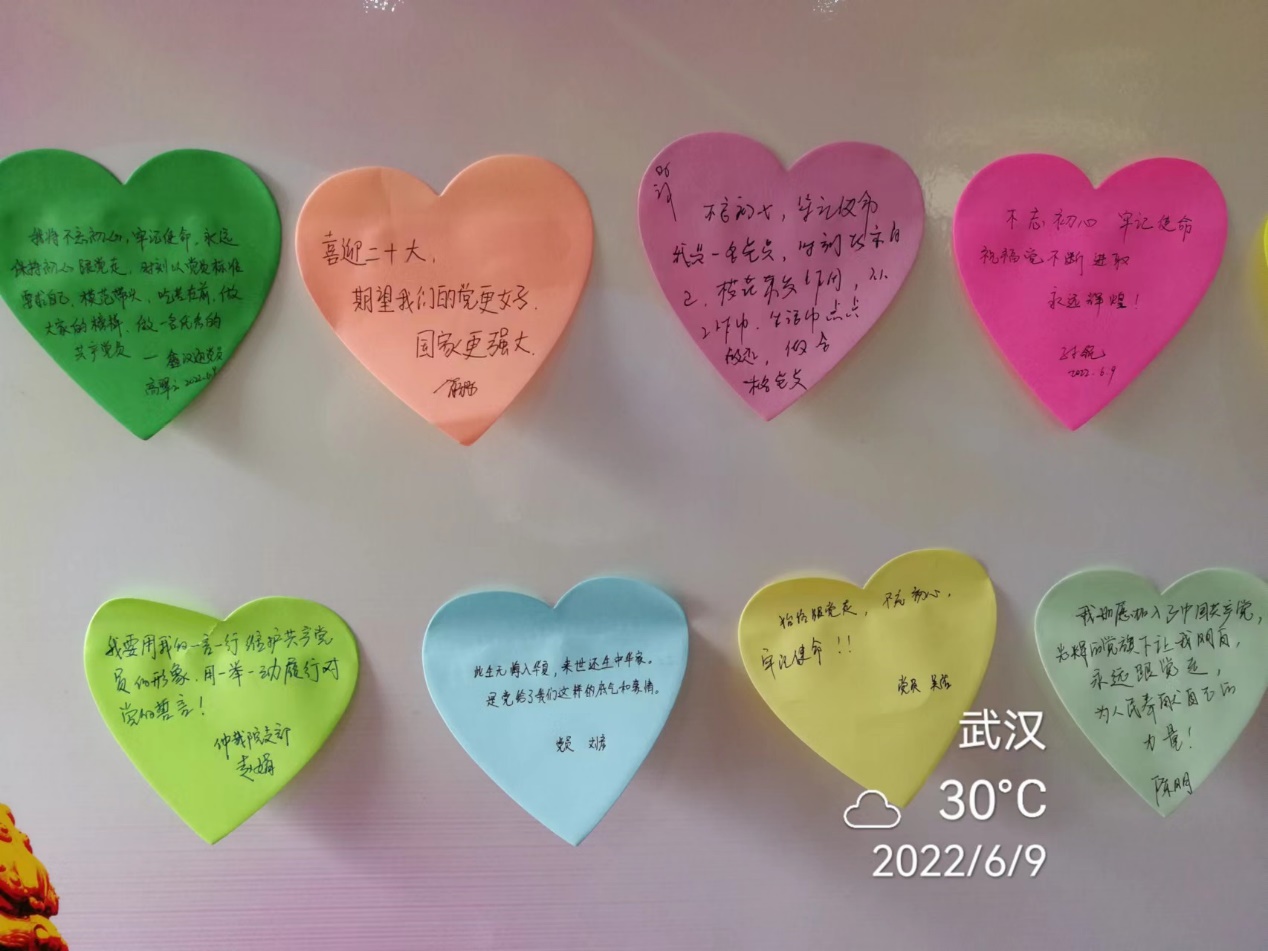 我将不忘初心,牢记使命,永远
保持初心跟党走,时刻以党员标准
要求自己,模范带头,吃苦在前,做
大家的榜样,做一名优秀的
共产党员
2022.6.9
喜迎二十大,
期望我们的党更好,
国家更强大.
不忘初心,牢记使命
我是一名党员,时刻
工作中,生活中点点
做合
格党员
不忘初心 牢记使命
祝福党不断进取
永远辉煌!
2022.6.9
我要用我的一言一行维护共产党
员的形象,用一举一动履行对
党的誓言!
仲裁院支部
赵娟
此生无悔入华夏,来世还生中华家。
是党给了我们这样的底气和豪情。
党员 刘彦
始终跟党走,不忘初心,
牢记使命!!
党员
我志愿加入了中国共产党,
光辉的党旗下让我明白,
永远跟党走,
为人民奉献自己的
力量!
陈明
武汉
30°C
2022/6/9